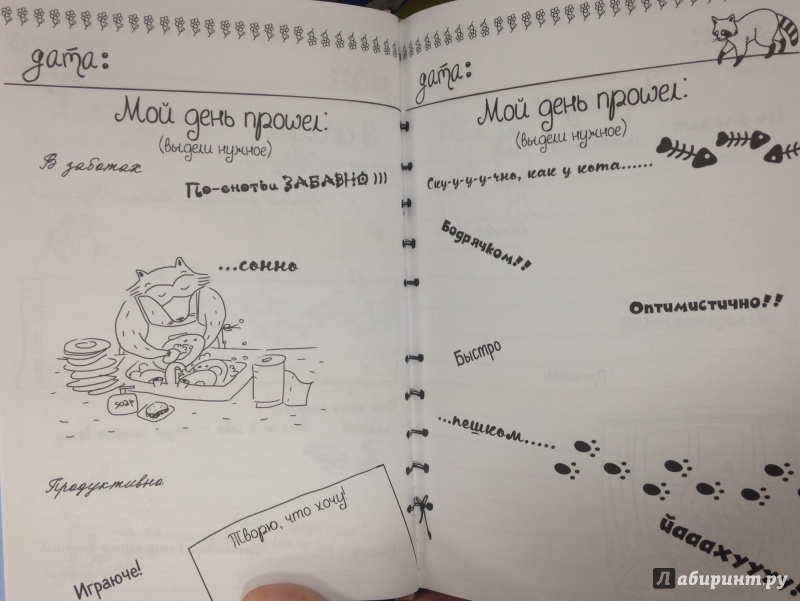 дата:
Мой день прошел:
(выдели нужное)
В заботах
По-енотьи ЗАБАВНО )))
...сонно
SOAP
Продуктивно
Творю, что хочу!
Играюче!
дата:
Мой день прошел:
(выдели нужное)
Ску-у-у-у-чно, как у кота......
Бодрячком!!
Оптимистично!!
Быстро
...пешком.....
йааахуууу!!
Лабиринт.ру